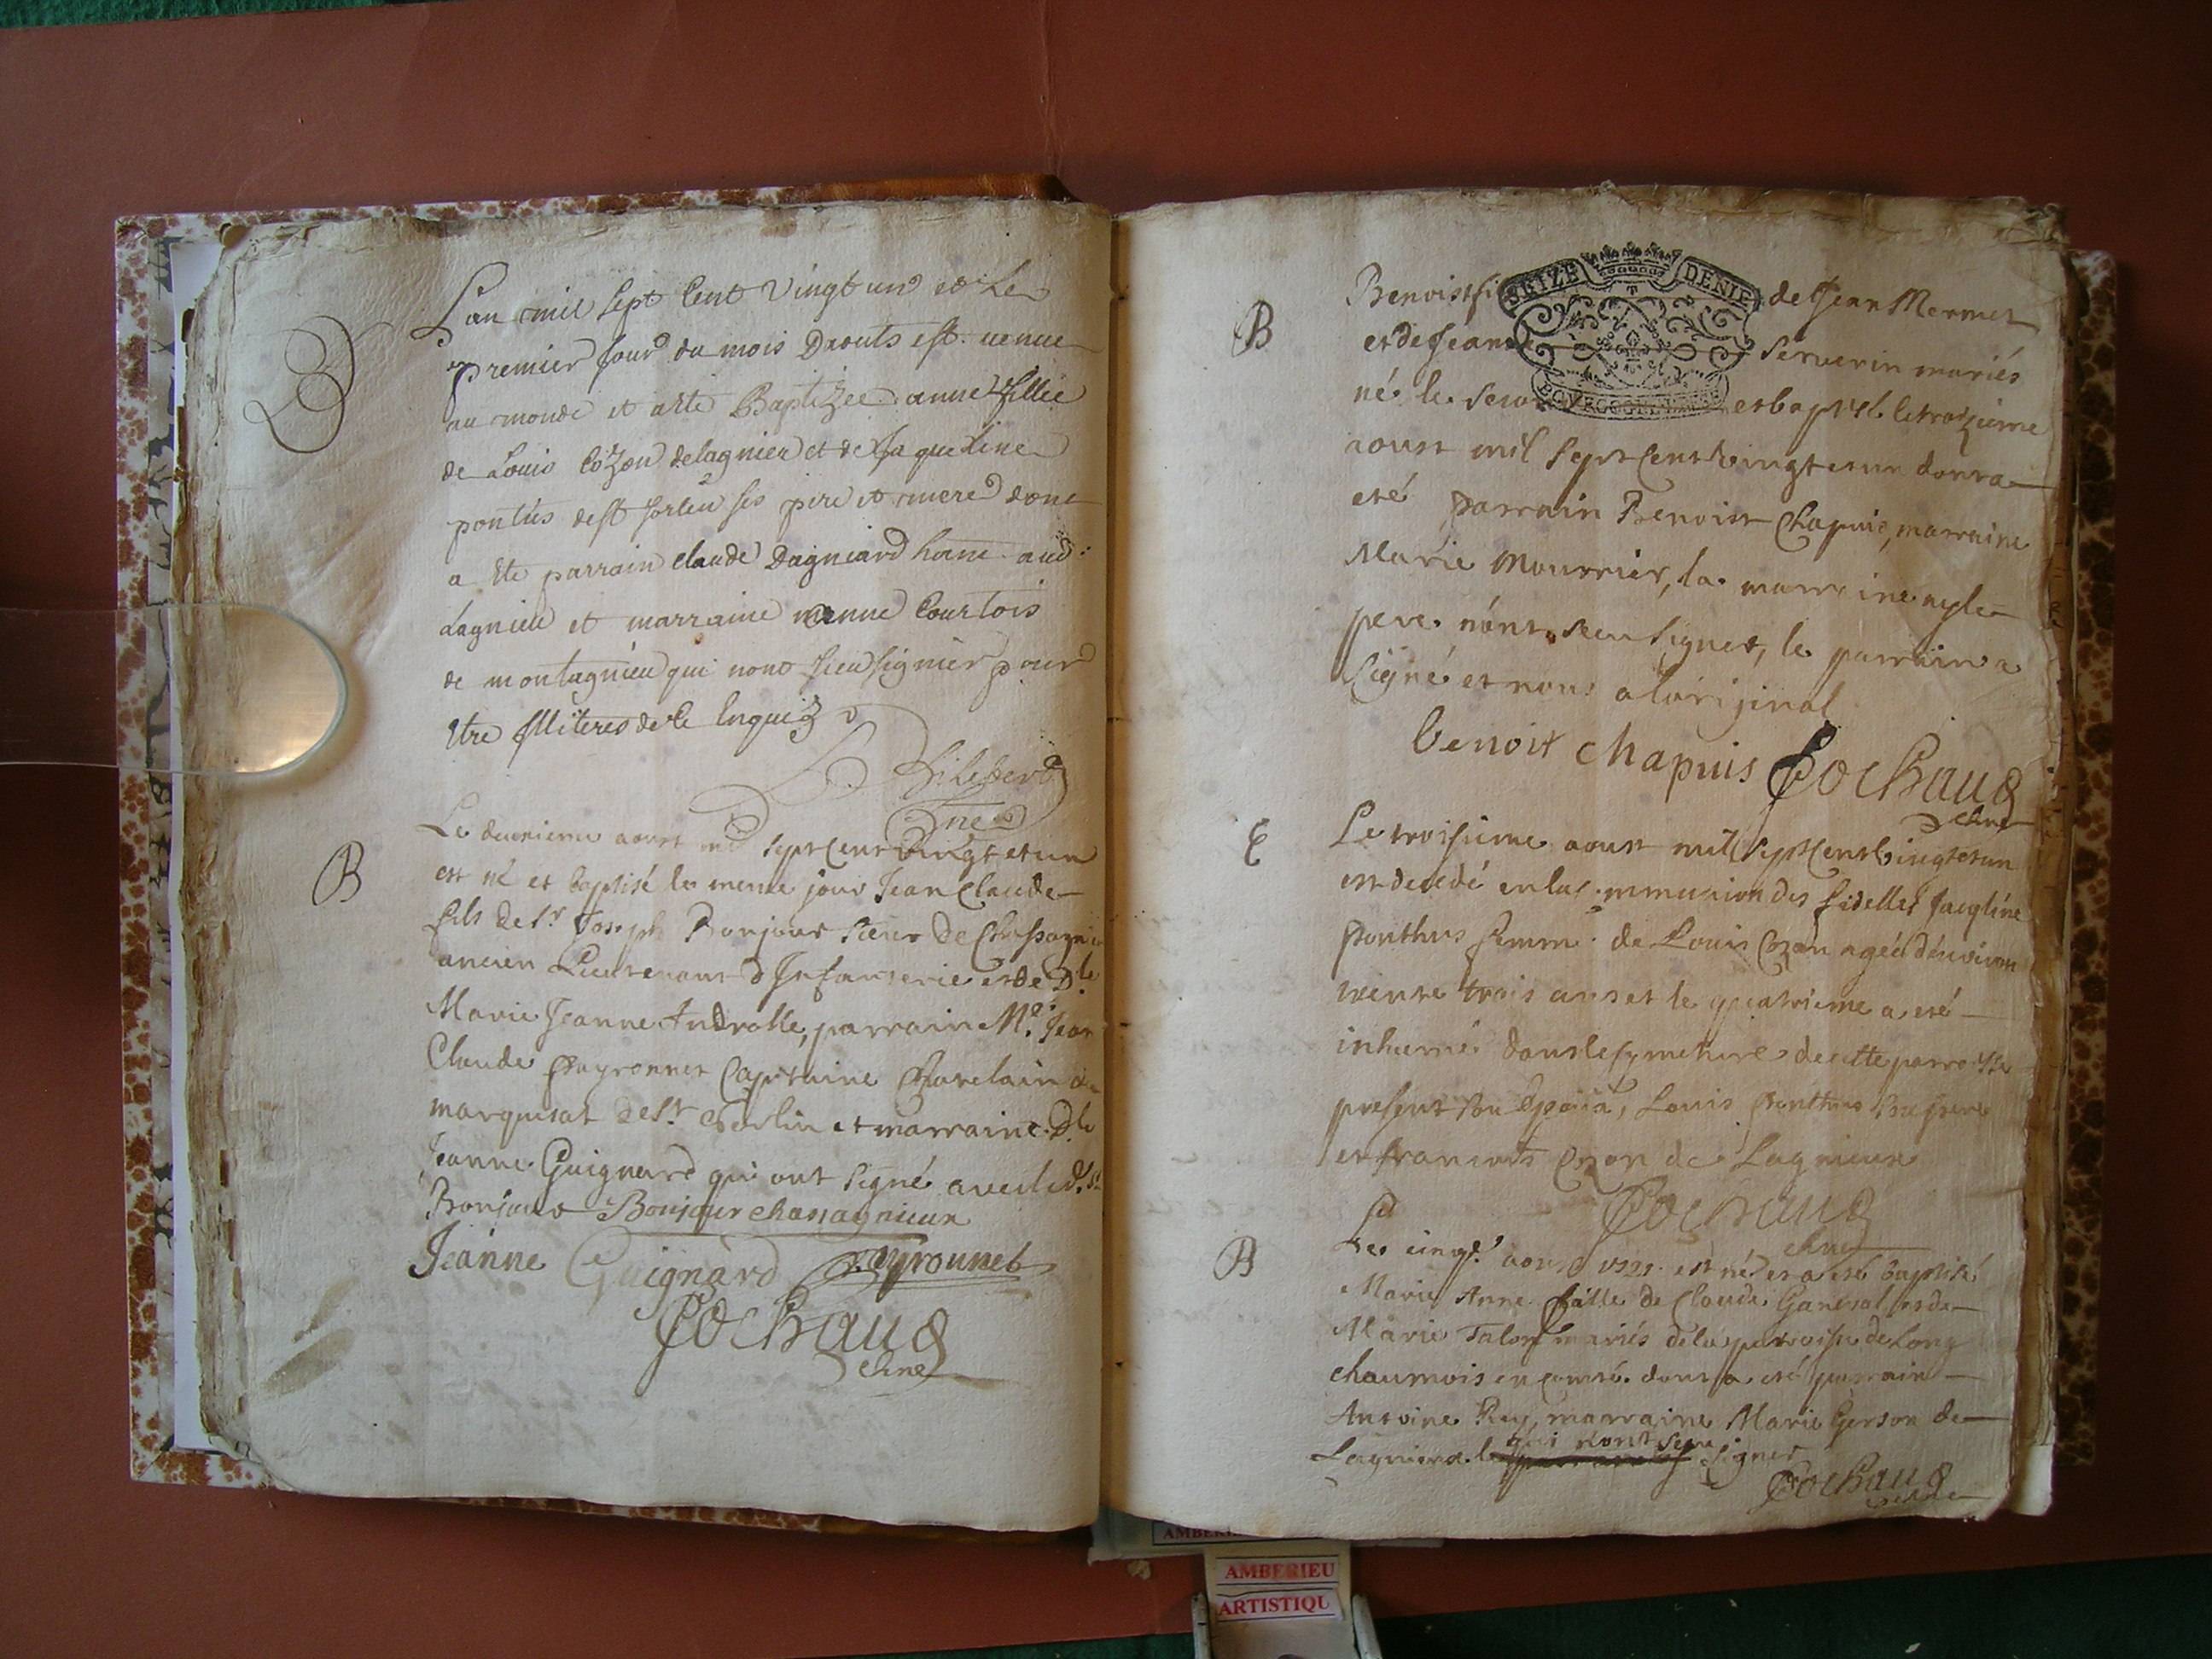 B
L'an mil sept Cent vingt un et Le
premier jour du mois Daouts est venue
au monde et aste Baptizee anne fillie
de Louis Cozon de lagnieu et de Jaqueline
pontus de st sorlin ses pere et mere dont
a ete parrain claude Dagniard hoñe aud:
Lagnieu et marraine Courtois
de montagnieu qui nont sceu signier pour
etre Illiteres de ce Enquiz
B
Le deuxieme aoust mil sept Cent vingt et un
est né et baptisé le meme jour Jean Claude
fils de Sr. Joseph Bonjour sieur de Chassagnieu
ancien Lieutenant d'Infanterie et de Dle.
Marie Jeanne Androlle, parrain Me. Jean
Claude Peyronnet Capitaine Chatelain du
marquisat de St. Sorlin et marraine Dle
Jeanne Guignard qui ont signé avec led. Sr.
Bonjour Bonjour chassagnieux
Jeanne Guignard Peyrounet
Cochaud
B
Benoist fils de Jean Mermet
SEIZE DENIE
et de Jeanne Serverin mariés
né le et baptisé le troizieme
aoust mil Sept Cent vingt et un dont a
eté parrain Benoist Chapuis, marraine
Marie Mourrier, la marraine ny le
pere n'ont sceu signer, le parrain a
signé et nous a l'original
benoit chapuis Cochaud
E
Le troisieme aoust mil sept Cent vingt et un
est decedé en la communion des fidelles Jacqline
Ponthus femme de Louis Cozon agée d'environ
trente trois ans et le quatrieme a eté
inhumé dans le symetiere de cette parroisse
present son Epoux, Louis Ponthus
et francois Cozon de Lagnieux
Cochaud
B
Le cinqe. aoust 1721 est né et a eté baptisé
Marie Anne fille de Claude et de
Marie Talon mariés de la paroisse de Long
chaumois en comté dont a eté parrain
Antoine Rey, marraine Marie Gerson de
qui nont sceu
Lagnieux signer
Cochaud
AMBERIEU
ARTISTIQU